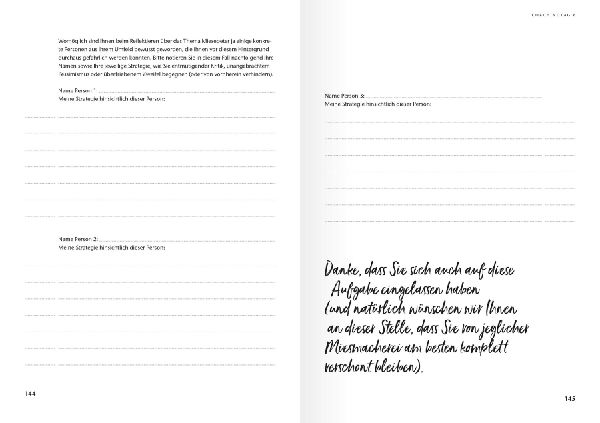 Womöglich sind Ihnen beim Reflektieren über das Thema Miesepetrigkeit einige konkre-
te Personen aus Ihrem Umfeld bewusst geworden, die Ihnen vor diesem Hintergrund
durchaus gefährlich werden könnten. Bitte notieren Sie in diesem Fall nachfolgend ihre
Namen sowie Ihre jeweilige Strategie, wie Sie entmutigender Kritik, unangebrachtem
Pessimismus oder übertriebenem Zweifel begegnen (oder von vornherein verhindern).
Name Person 1:
Meine Strategie hinsichtlich dieser Person:
Name Person 2:
Meine Strategie hinsichtlich dieser Person:
144
Name Person 3:
Meine Strategie hinsichtlich dieser Person:
Danke, dass Sie sich auch auf diese
Aufgabe eingelassen haben
(und natürlich wünschen wir Ihnen
an dieser Stelle, dass Sie von jeglicher
Miesmacherei am besten komplett
verschont bleiben).
145